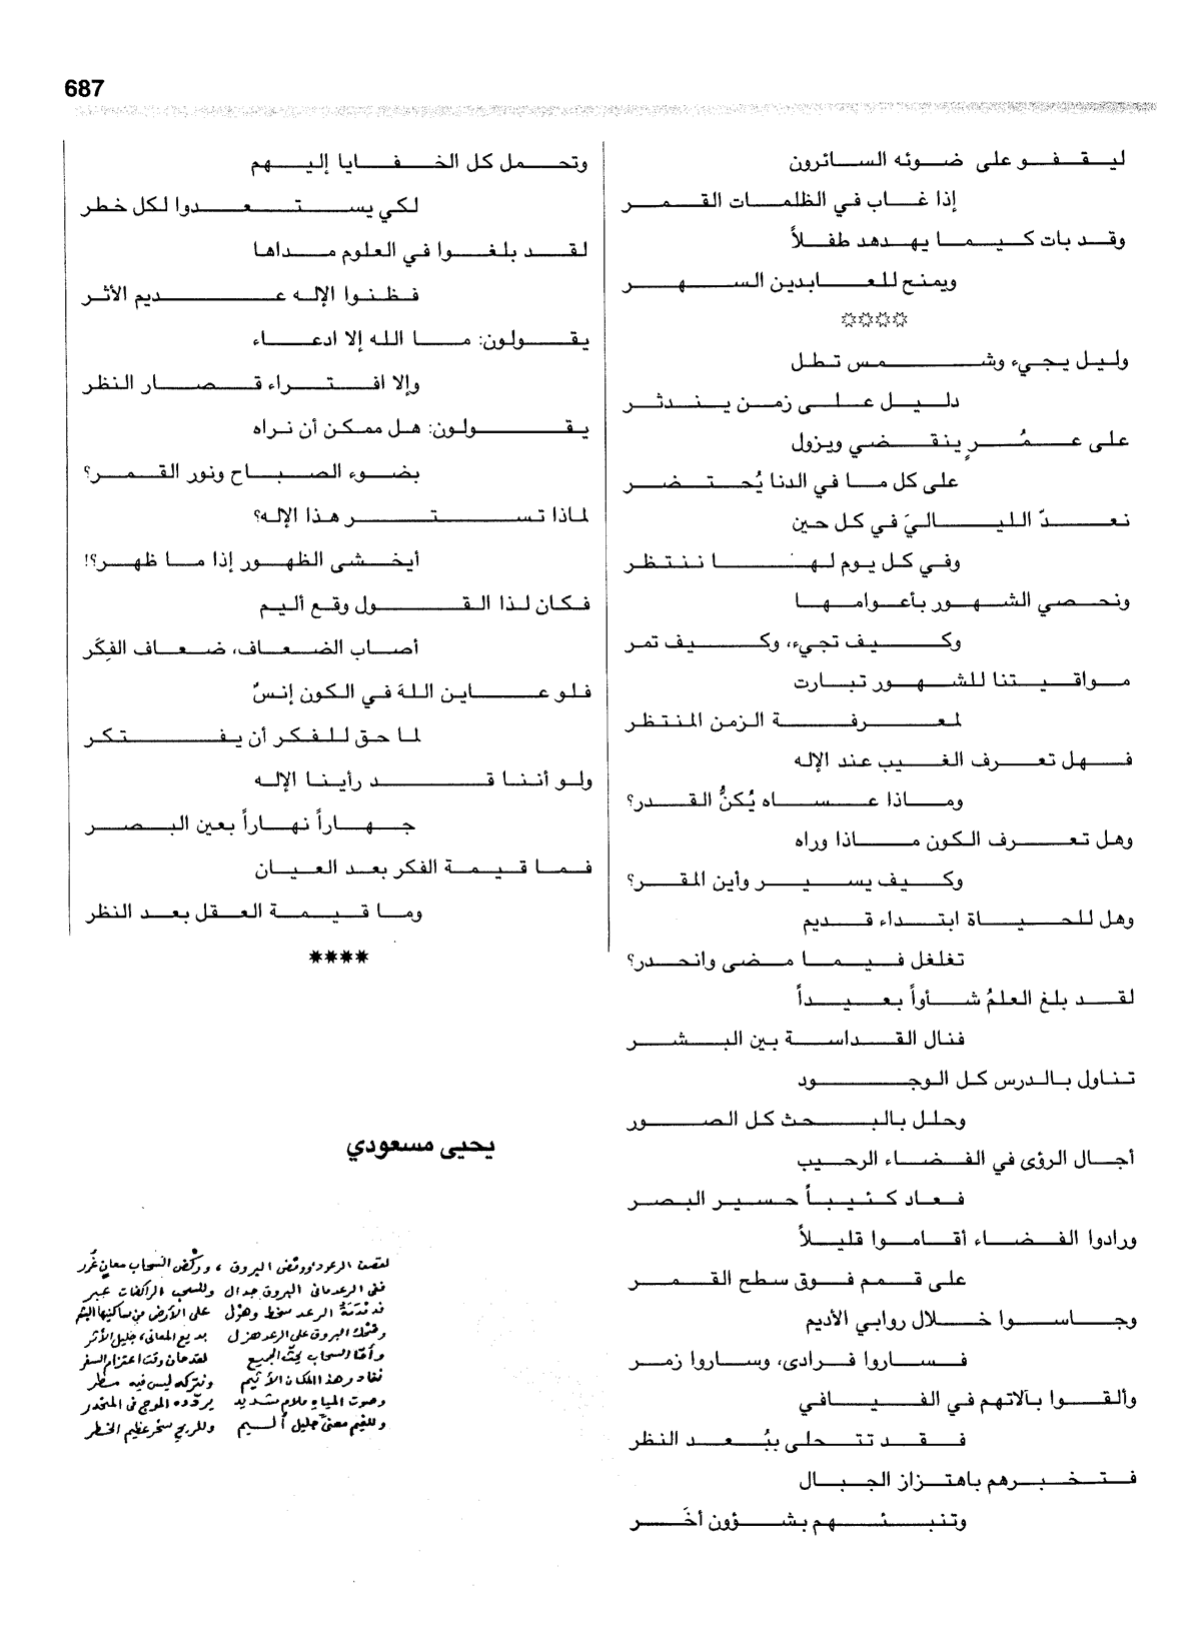 687
ليقفو على ضوئه السائرون
إذا غاب في الظلمات القمر
وقد بات كيما يهدهد طفلاً
ويمنح للعابدين السهر
☼☼☼☼
وليل يجيء وشمس تطل
دليل على زمن يندثر
على عمُرٍ ينقضي ويزول
على كل ما في الدنا يُحتضر
نعدّ اللياليَ في كل حين
وفي كل يوم لها ننتظر
ونحصي الشهور بأعوامها
وكيف تجيء، وكيف تمر
مواقيتنا للشهور تبارت
لمعرفة الزمن المنتظر
فهل تعرف الغيب عند الإله
وماذا عساه يُكنُّ القدر؟
وهل تعرف الكون ماذا وراه
وكيف يسير وأين المقر؟
وهل للحياة ابتداء قديم
تغلغل فيما مضى وانحدر؟
لقد بلغ العلمُ شأواً بعيداً
فنال القداسة بين البشر
تناول بالدرس كل الوجود
وحلل بالبحث كل الصور
أجال الرؤى في الفضاء الرحيب
فعاد كئيباً حسير البصر
ورادوا الفضاء أقاموا قليلاً
على قمم فوق سطح القمر
وجاسوا خلال روابي الأديم
فساروا فرادى، وساروا زمر
وألقوا بآلاتهم في الفيافي
فقد تتحلى ببُعد النظر
فتخبرهم باهتزاز الجبال
وتنبئهم بشؤون أخَر
وتحمل كل الخفايا إليهم
لكي يستعدوا لكل خطر
لقد بلغوا في العلوم مداها
فظنوا الإله عديم الأثر
يقولون: ما الله إلا ادعاء
وإلا افتراء قصار النظر
يقولون: هل ممكن أن نراه
بضوء الصباح ونور القمر؟
لماذا تستر هذا الإله؟
أيخشى الظهور إذا ما ظهر؟!
فكان لذا القول وقع أليم
أصاب الضعاف، ضعاف الفِكَر
فلو عاين اللهَ في الكون إنسٌ
لما حق للفكر أن يفتكر
ولو أننا قد رأينا الإله
جهاراً نهاراً بعين البصر
فما قيمة الفكر بعد العيان
وما قيمة العقل بعد النظر
****
يحيى مسعودي
لقصف الرعود وومْض البروق، وركْض السحاب معانٍ غُرر
ففي الرعد مافي البروق جدال وللسحب الراكضات عبر
سخط وهوْل على الأرض من ساكنيها البشر
وضحك البروق على الرعد هزل بديع المعاني، جليل الأثر
وأمّا السحاب يحثّ الجميع لقد حان وقت اعتزام السفر
نغادر هذا المكان الأثيم ونتركه ليس فيه مطر
وصوت المياه ملام شديد يردّده الموج في المنحدر
وللغيم معنىً جليل أليم وللريح سخر عظيم الخطر